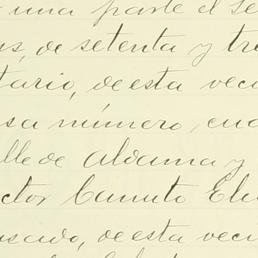 una parte el Se
us, de setenta y tre
tario, de esta veci
sa número, cua
lle de Aldama y
ctor Canuto Eli
usado, de esta veci